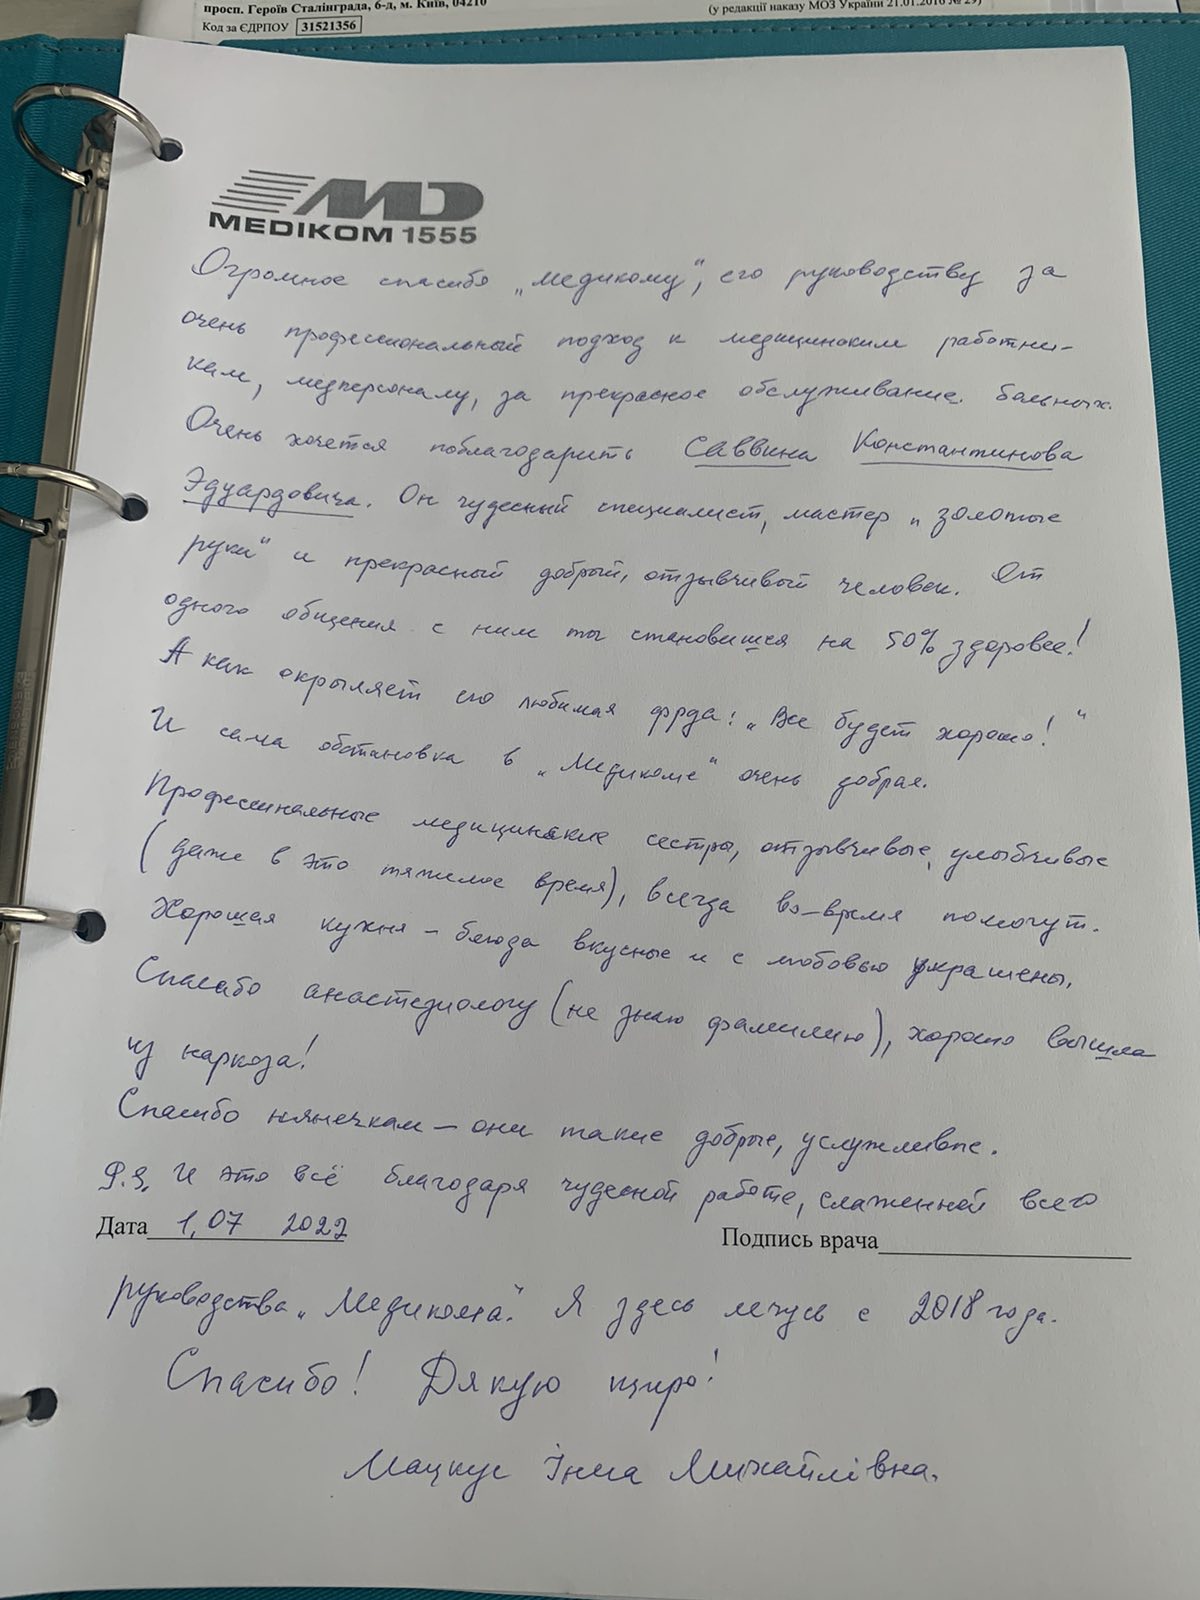 просп. Героїв Сталінграда, 6-д, м. Київ, 04210
(у редакції наказу МОЗ України 21.01.2016 № 29)
Код за ЄДРПОУ 31521356
MD
MEDIKOM 1555
Огромное спасибо „Медикому", его руководству за
очень профессиональный подход к медицинским работни-
кам, медперсоналу, за прекрасное обслуживание больных.
Очень хочется поблагодарить Саввина Константинова
Эдуардовича. Он чудесный специалист, мастер „золотые
руки" и прекрасный добрый, отзывчивый человек. От
одного общения с ним ты становишся на 50% здоровее!
А как окрыляет его любимая фрда: „Все будет хорошо!"
И сама обстановка в „Медикоме" очень добрая.
Професинальные медицинские сестры, отзывчивые, улыбчивые
(даже в это тяжелое время), всегда во-время помогут.
Хорошая кухня – блюда вкусные и с любовью украшены.
Спасибо анастезиологу (не знаю фамилию), хорошо вышла
из наркоза!
Спасибо нянечкам – они такие добрые, услужливые.
P.S. И это всё благодаря чудесной работе, слаженной всего
Дата 1,07 2022
Подпись врача
руководства „Медикома". Я здесь лечусь с 2018 года.
Спасибо! Дякую щиро!
Мацкус Інна Михайлівна.